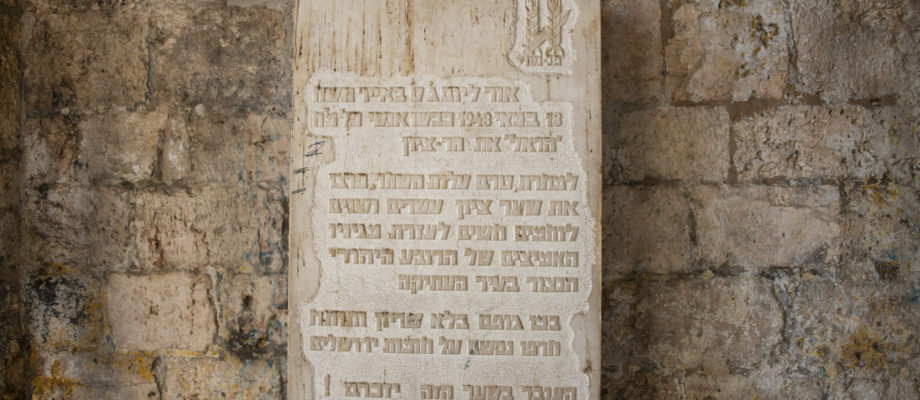 פל-מח
אור ליום ט באייר תשח
18 במאי 1948 כבשו אנשי פלמ"ח
"הראל" את הר-ציון
למחרת, טרם עלות השחר, פרצו
את שער ציון עשרים ושנים
לוחמים חשים לעזרת מגיניו
האמיצים של הרובע היהודי
הנצור בעיר העתיקה
במו גופם בלא שריון ותותח
חרפו נפשם על חומות ירושלים
העובר בשער הזה יזכרם !